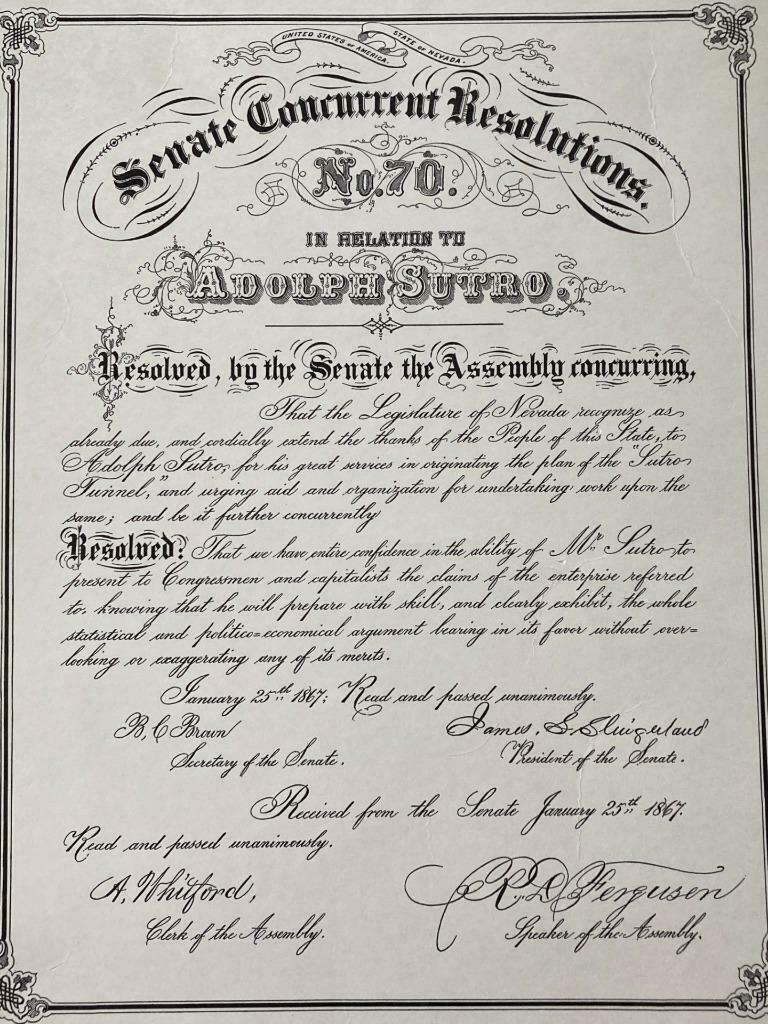 UNITED STATES OF AMERICA. STATE OF NEVADA.
Senate Concurrent Resolutions.
No. 70.
IN RELATION TO
ADOLPH SUTRO.
Resolved, by the Senate the Assembly concurring,
That the Legislature of Nevada recognize as
already due, and cordially extend the thanks of the People of this State, to
Adolph Sutro, for his great services in originating the plan of the "Sutro
Tunnel," and urging aid and organization for undertaking work upon the
same; and be it further concurrently
Resolved: That we have entire confidence in the ability of Mr. Sutro to
present to Congressmen and capitalists the claims of the enterprise referred
to: knowing that he will prepare with skill, and clearly exhibit, the whole
statistical and politico=economical argument bearing in its favor without over=
looking or exaggerating any of its merits.
January 25th 1867; Read and passed unanimously.
B, C Brown James, S, Slingerland
Secretary of the Senate. President of the Senate.
Received from the Senate January 25th 1867.
Read and passed unanimously.
A, Whitford, R, D, Fergusen
Clerk of the Assembly. Speaker of the Assembly.